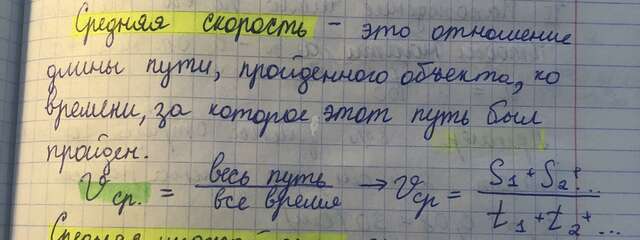 Средняя скорость – это отношение
длины пути, пройденного объекта, ко
времени, за которое этот путь был
пройден.
𝒱ср. = весь путь / все время → 𝒱ср = S₁+S₂+... / t₁+t₂+...
Средняя